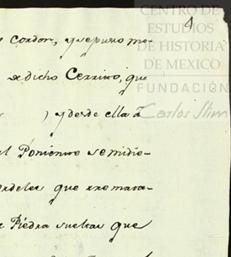 4
CENTRO DE
ESTUDIOS
DE HISTORIA
DE MEXICO
FUNDACIÓN
Carlos Slim
Cordon, que puso mo-
dicho Cerrito, que
) y desde ella á
el Poniente se midie-
ordeles que rema-
Piedra sueltas que